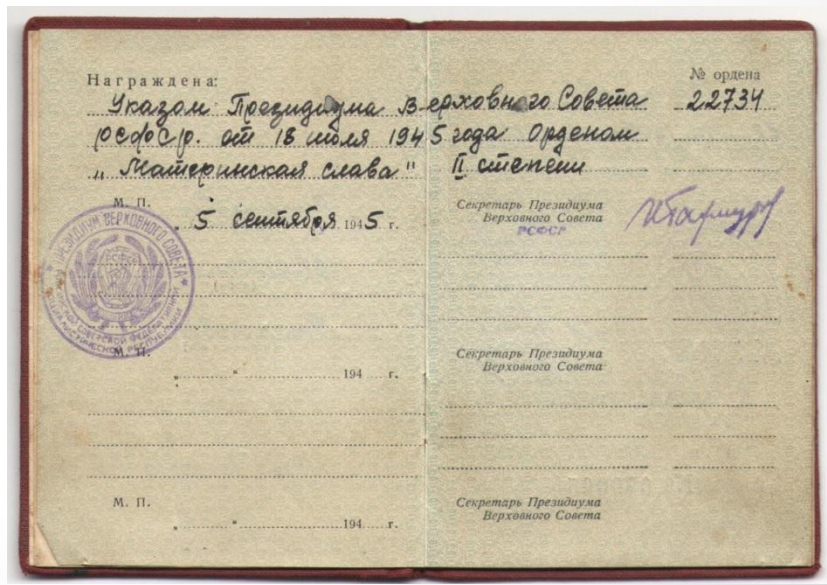 Награждена:
№ ордена
Указом Президиума Верховного Совета 22734
РСФСР. от 18 июля 1945 года Орденом
„Материнская слава" II степени
М. П.
5 сентября 1945 г.
Секретарь Президиума
Верховного Совета
РСФСР
ПРЕЗИДИУМ ВЕРХОВНОГО СОВЕТА
СОВЕТСКОЙ ФЕДЕРАТИВНОЙ
СОЦИАЛИСТИЧЕСКОЙ РЕСПУБЛИКИ
М. П.
„ " 194 г.
Секретарь Президиума
Верховного Совета
М. П.
„ " 194 г.
Секретарь Президиума
Верховного Совета